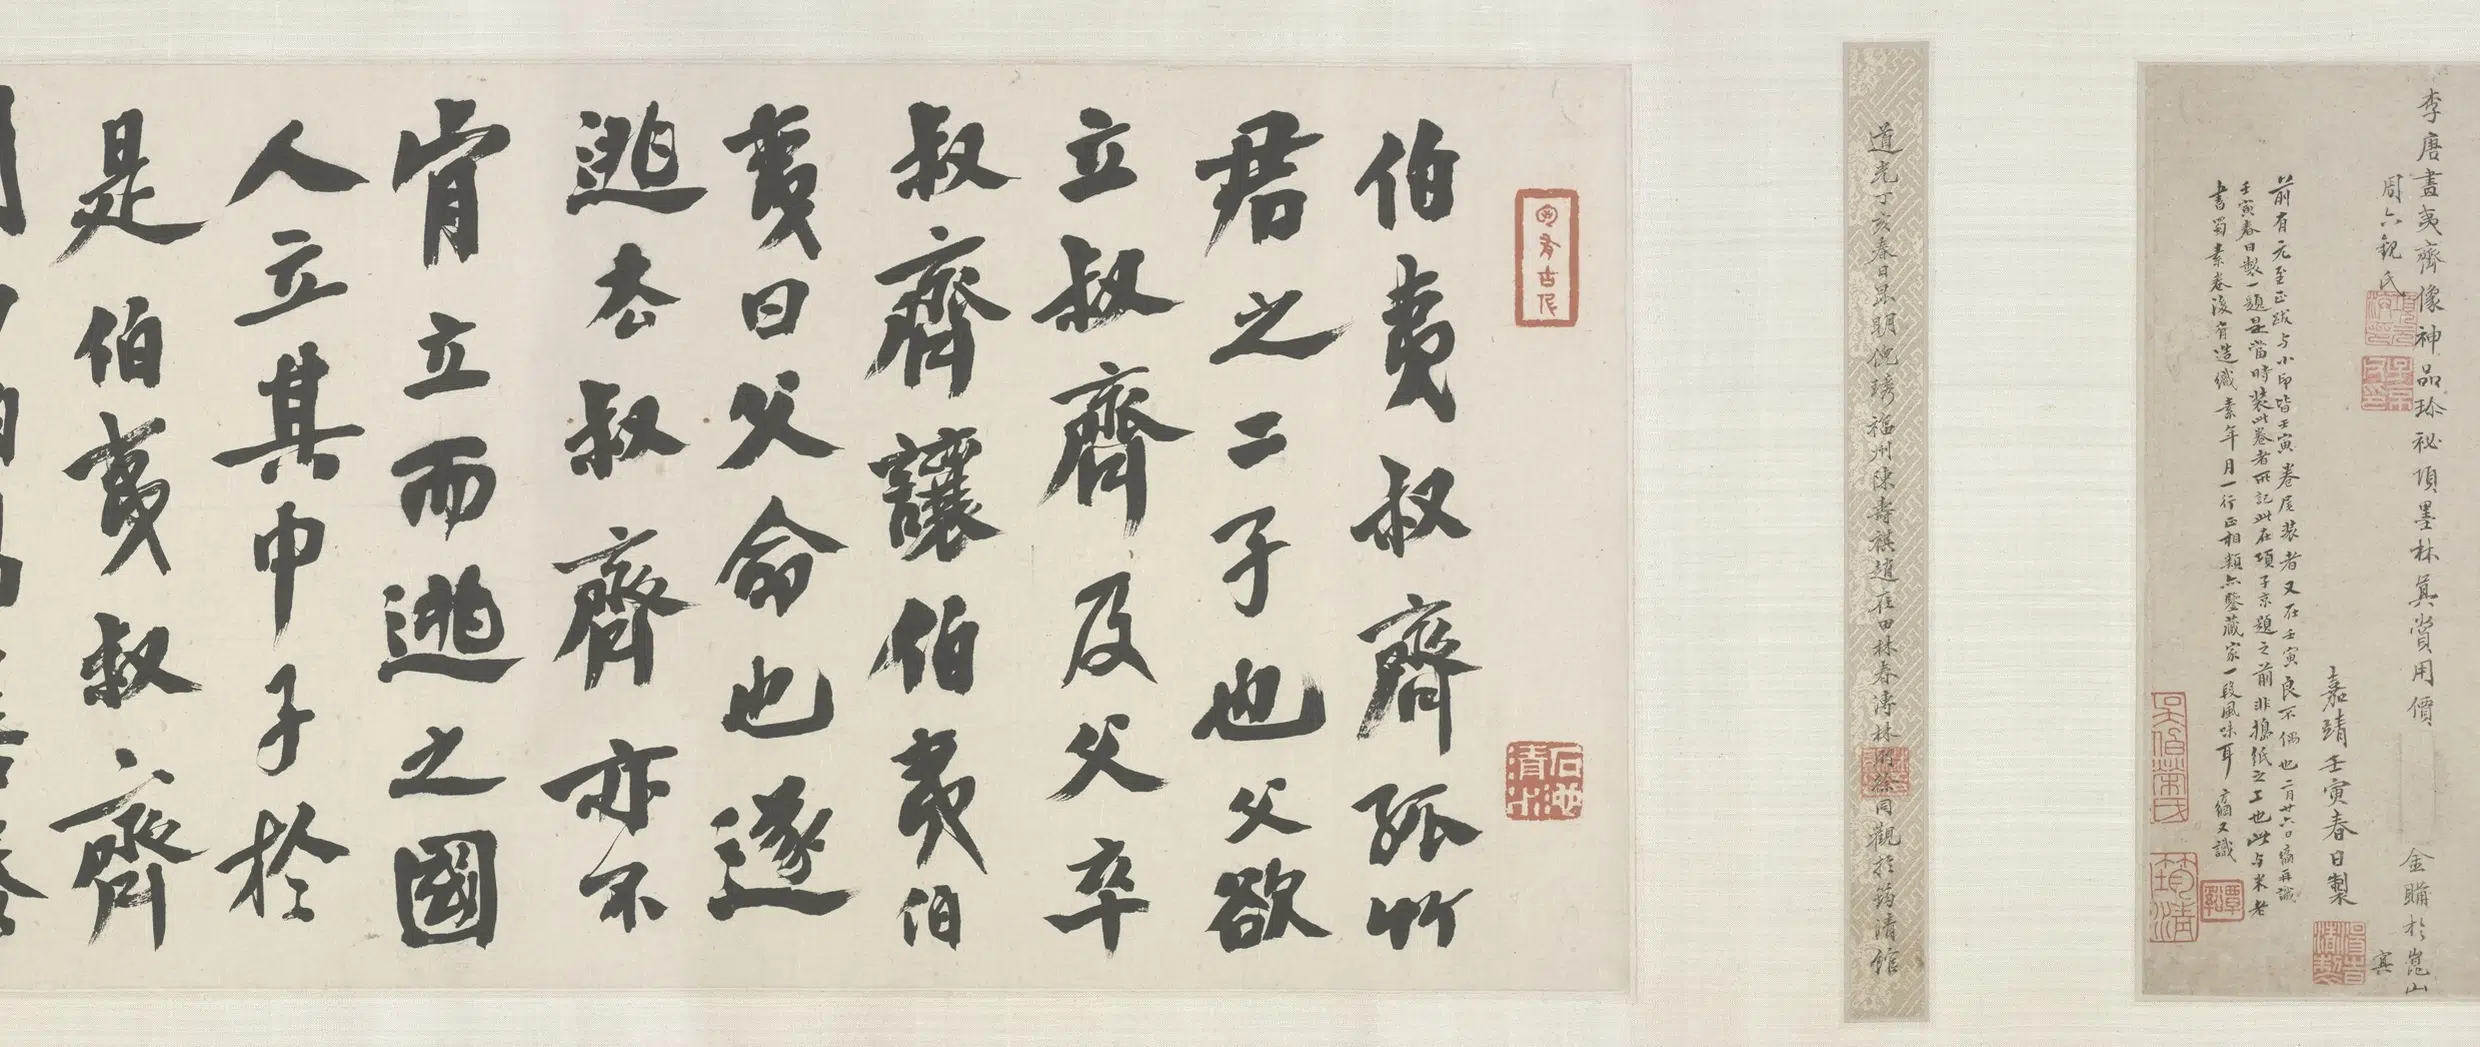 李唐畫夷齊像神品珍秘項墨林真賞用價
金購於崑山
周六觀氏
寅
嘉靖壬寅春日製
前有元至正跋与小印皆壬寅卷尾裝者又在壬寅良不偶也二月廿六日再識
壬寅春日製一題是當時裝此卷者所記此在項子京題之前非搗紙之工也此与米老
書蜀素卷後有造織素年月一行正相類亦鑒藏家一段風味耳 又識
道光丁亥春日昆明倪琇福州陳壽祺趙在田林春溥林則徐同觀於筠清館
伯夷叔齊孤竹
君之二子也父欲
立叔齊及父卒
叔齊讓伯夷伯
夷曰父命也遂
逃去叔齊亦不
肯立而逃之國
人立其中子於
是伯夷叔齊